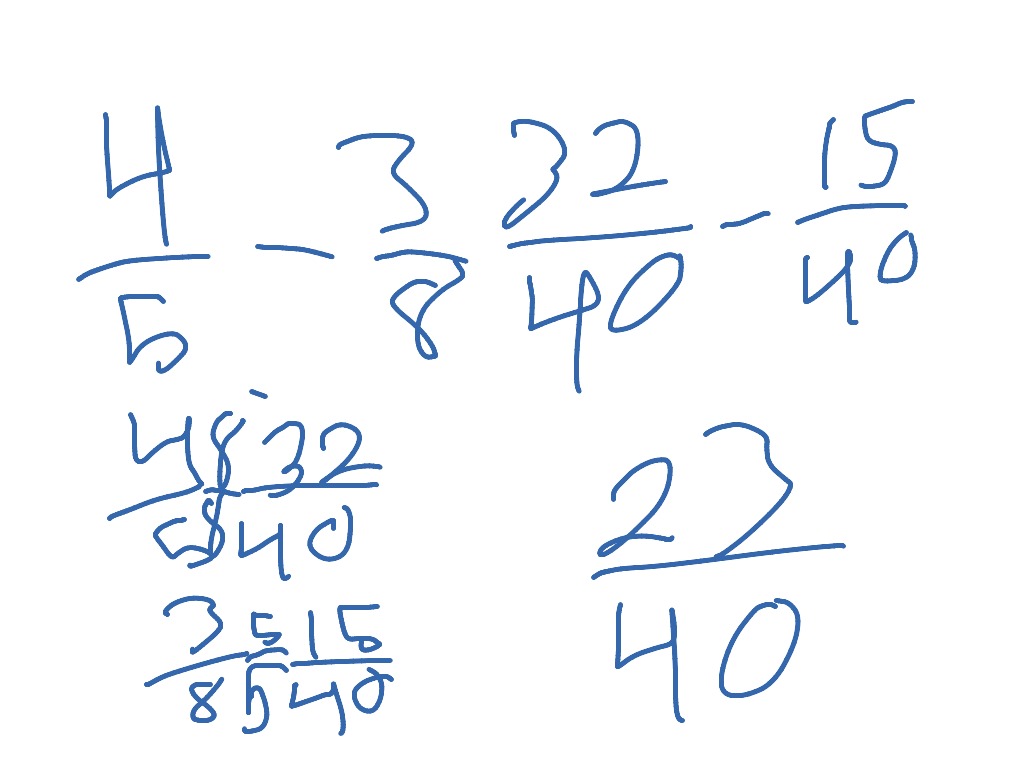 4/5 - 3/8 32/40 - 15/40
4/5 8/8 32/40
3/8 5/5 15/40
23/40